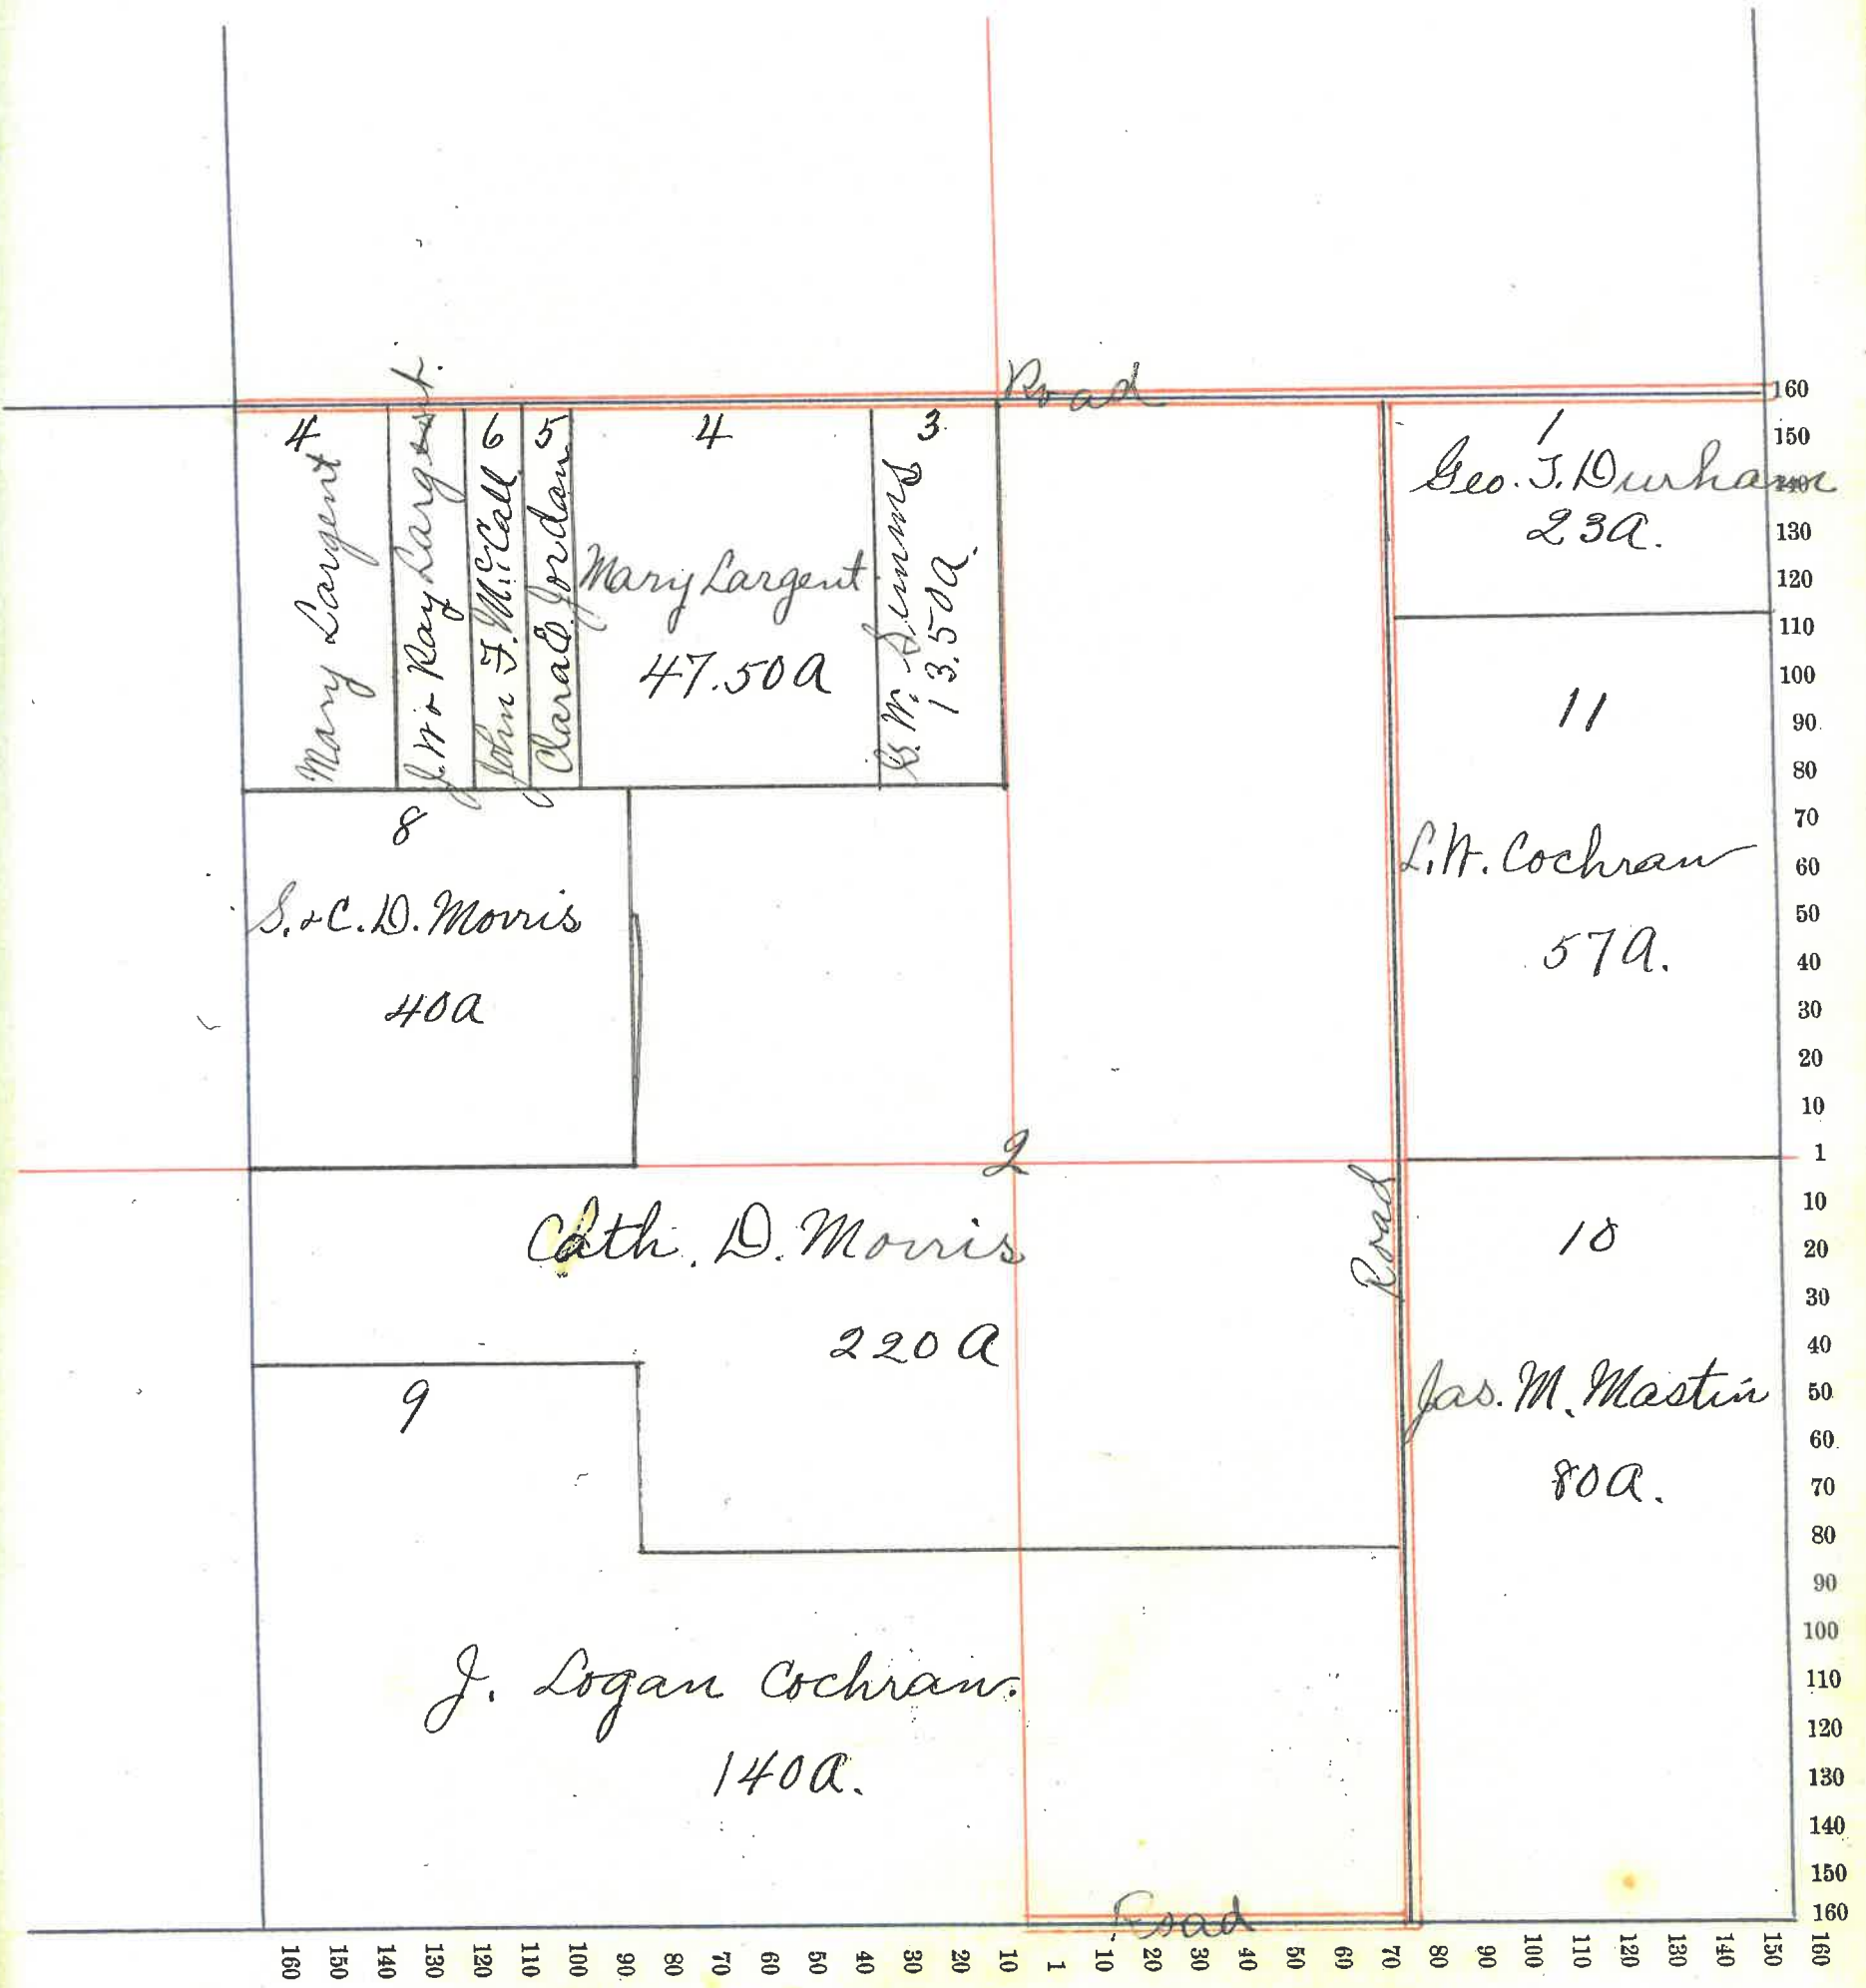 Road
4
Mary Largent
J. W. & Ray Largent.
6
John F. McCall
5
Clara E. Jordan
4
Mary Largent
47.50 A
3
G. W. Simms
13.50 A.
1
Geo. T. Durham
23 A.
11
L. W. Cochran
57 A.
8
S. & C. D. Morris
40 A
2
Cath. D. Morris
220 A
Road
10
Jas. M. Mastin
80 A.
9
J. Logan Cochran.
140 A.
Road
160
150
140
130
120
110
100
90
80
70
60
50
40
30
20
10
1
10
20
30
40
50
60
70
80
90
100
110
120
130
140
150
160
160 150 140 130 120 110 100 90 80 70 60 50 40 30 20 10 1 10 20 30 40 50 60 70 80 90 100 110 120 130 140 150 160